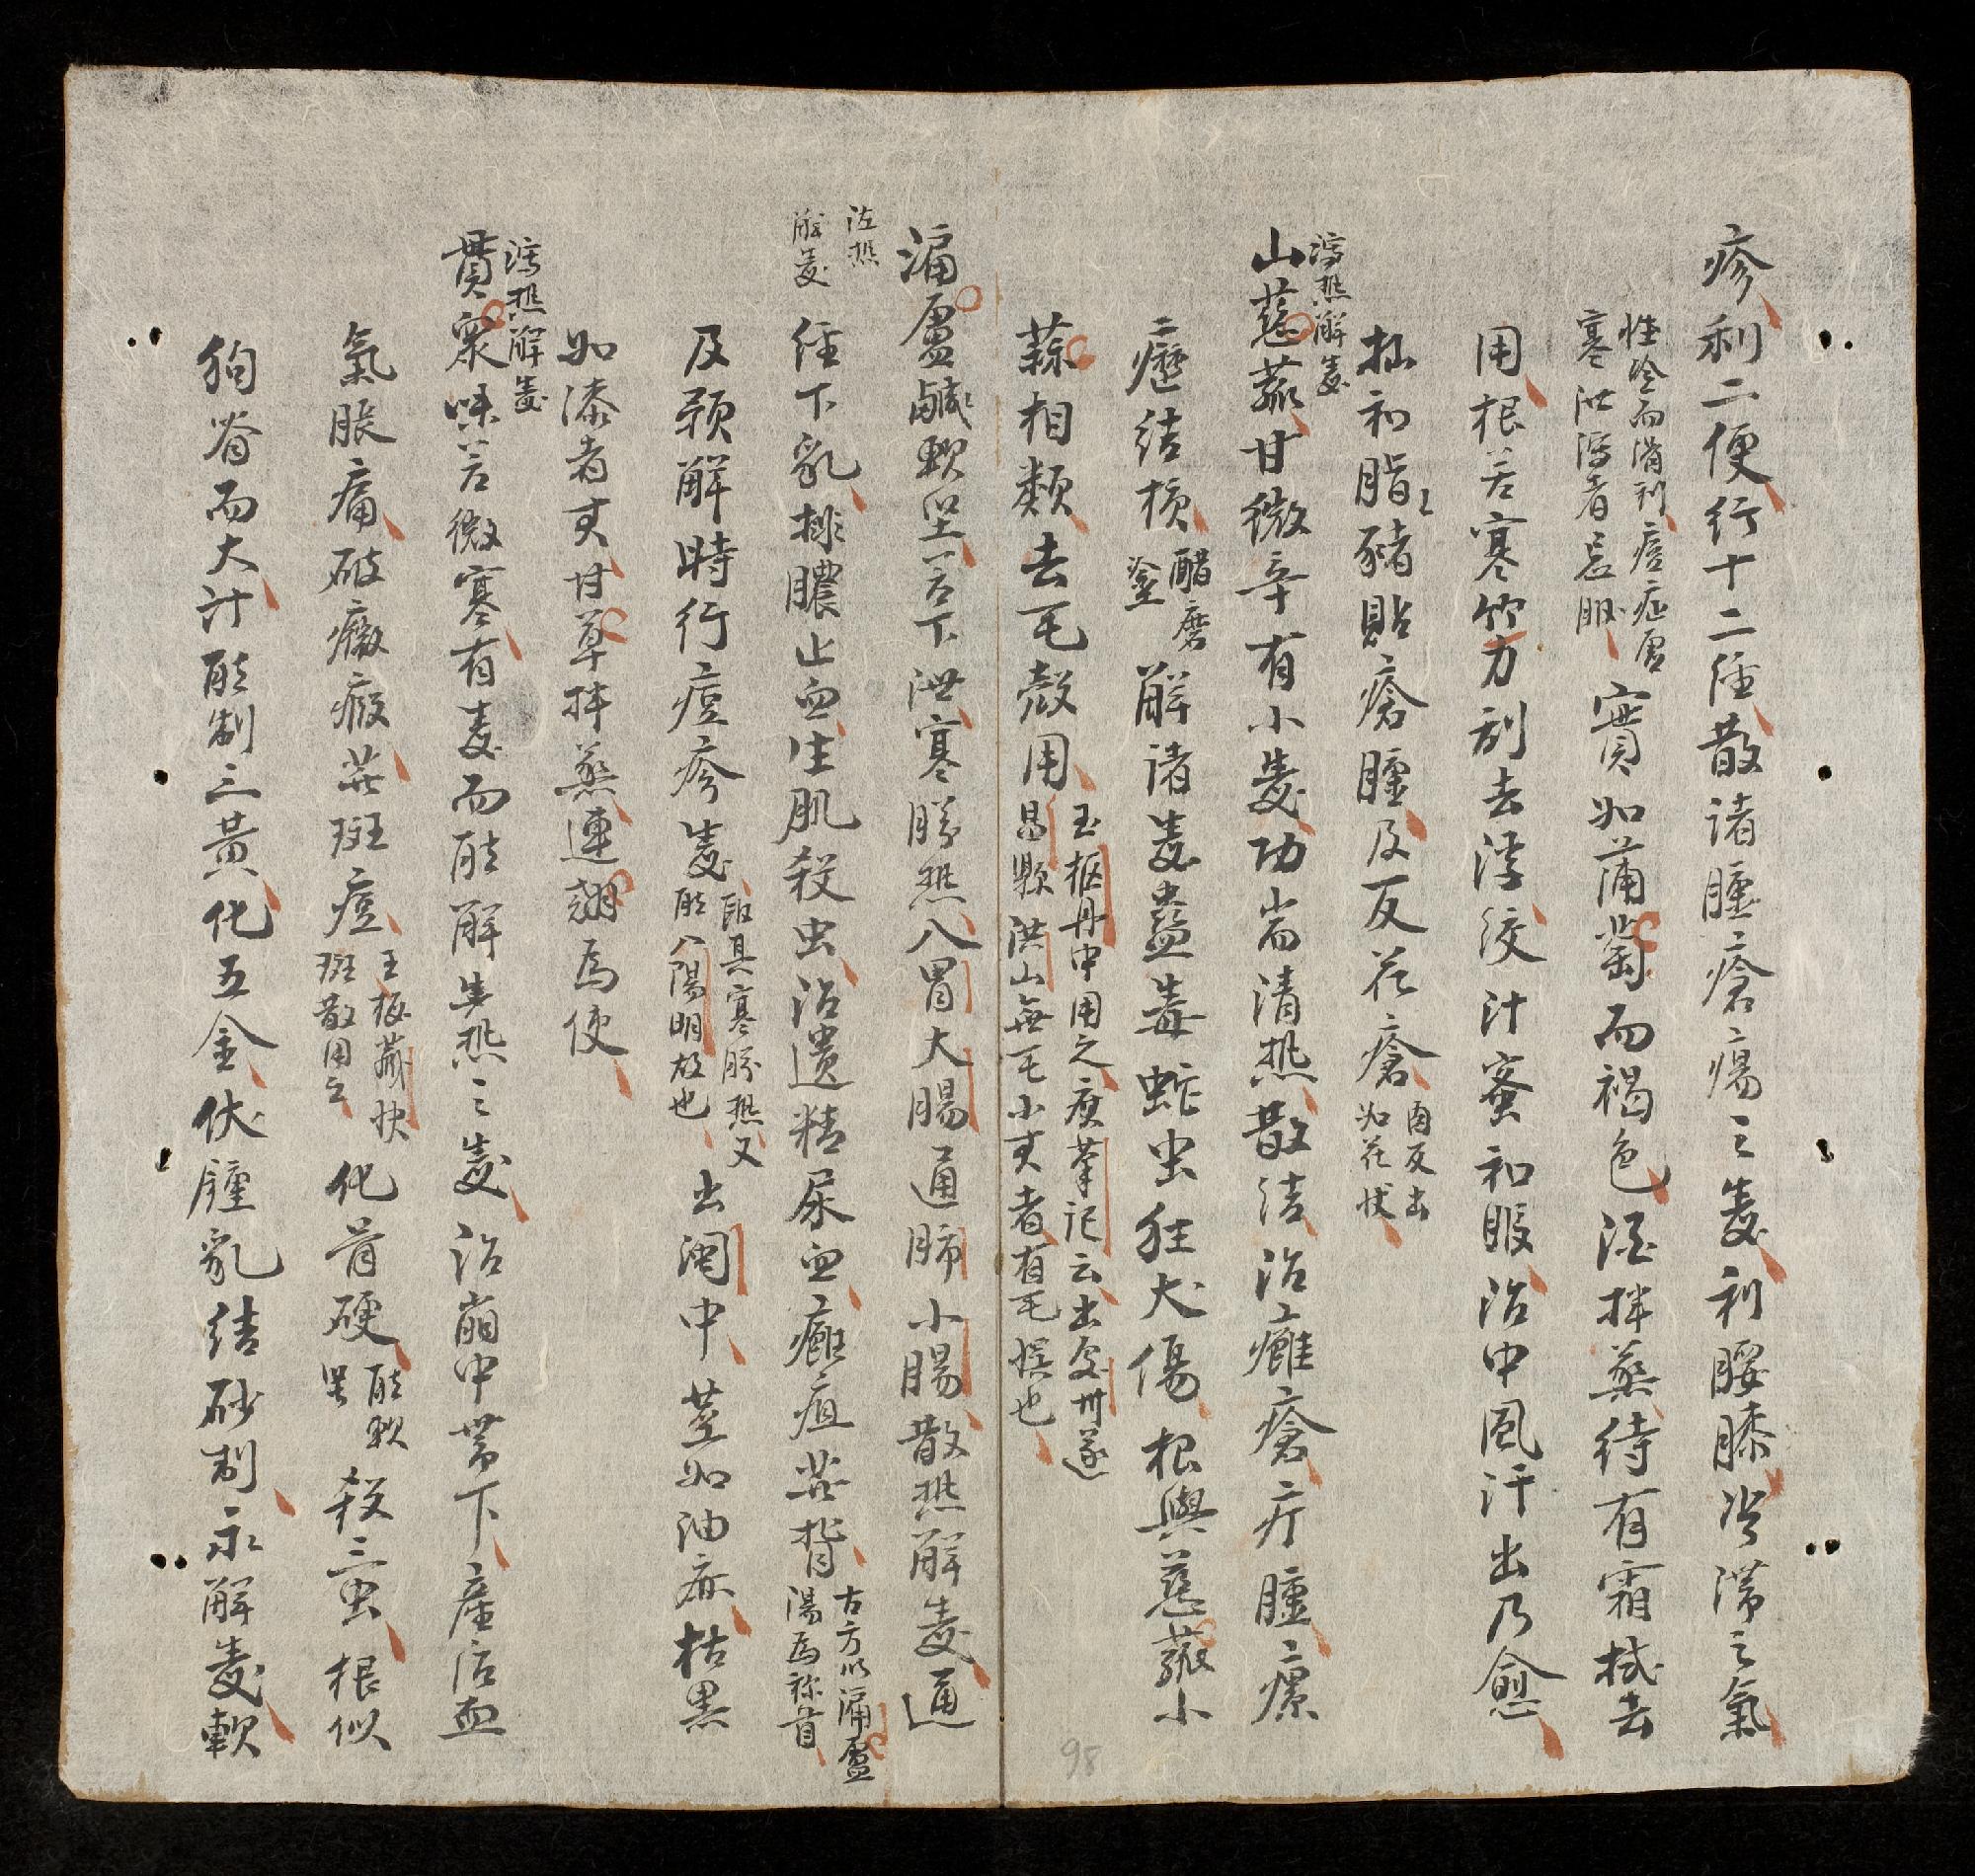 疹利二便行十二経散諸腫瘡瘍之毒利腰膝冷滞之氣
性冷而滑利痘症虛
寒泄瀉者忌服
實如蒲萄而褐色酒拌蒸待有霜拭去
用根苦寒竹刀刮去浮絞汁蜜和服治中風汗出乃愈
和脂猪貼瘡腫及反花瘡
肉反出
如花狀
瀉熱解毒
山慈菰甘微辛有小毒功耑清熱散結治癰瘡疔腫瘰
癧結核
醋磨
塗
解諸毒蠱毒蛇虫狂犬傷根與慈菰小
蒜相類去毛殼用
玉樞丹中用之廣筆記云出处州遂
昌縣洪山無毛小者有毛悮也
漏盧鹹軟坚苦下泄寒勝熱入胃大腸通肺小腸散熱解毒通
泻熱
解毒
経下乳排膿止血生肌殺虫治遺精尿血癰疽發背
古方以漏盧
湯為称首
及預解時行痘疹毒
取其寒勝熱又
能入陽明故也
出閩中莖如油麻枯黑
如漆者真甘草拌蒸連翹為使
瀉熱解毒
貫衆味苦微寒有毒而能解邪熱之毒治崩中帶下産后血
氣脹痛破癥瘕發斑痘
王海藏快
斑散用之
化骨硬
能軟
坚
殺三虫根似
狗脊而大汁能制三黃化五金伏鍾乳結砂制汞解毒軟
98